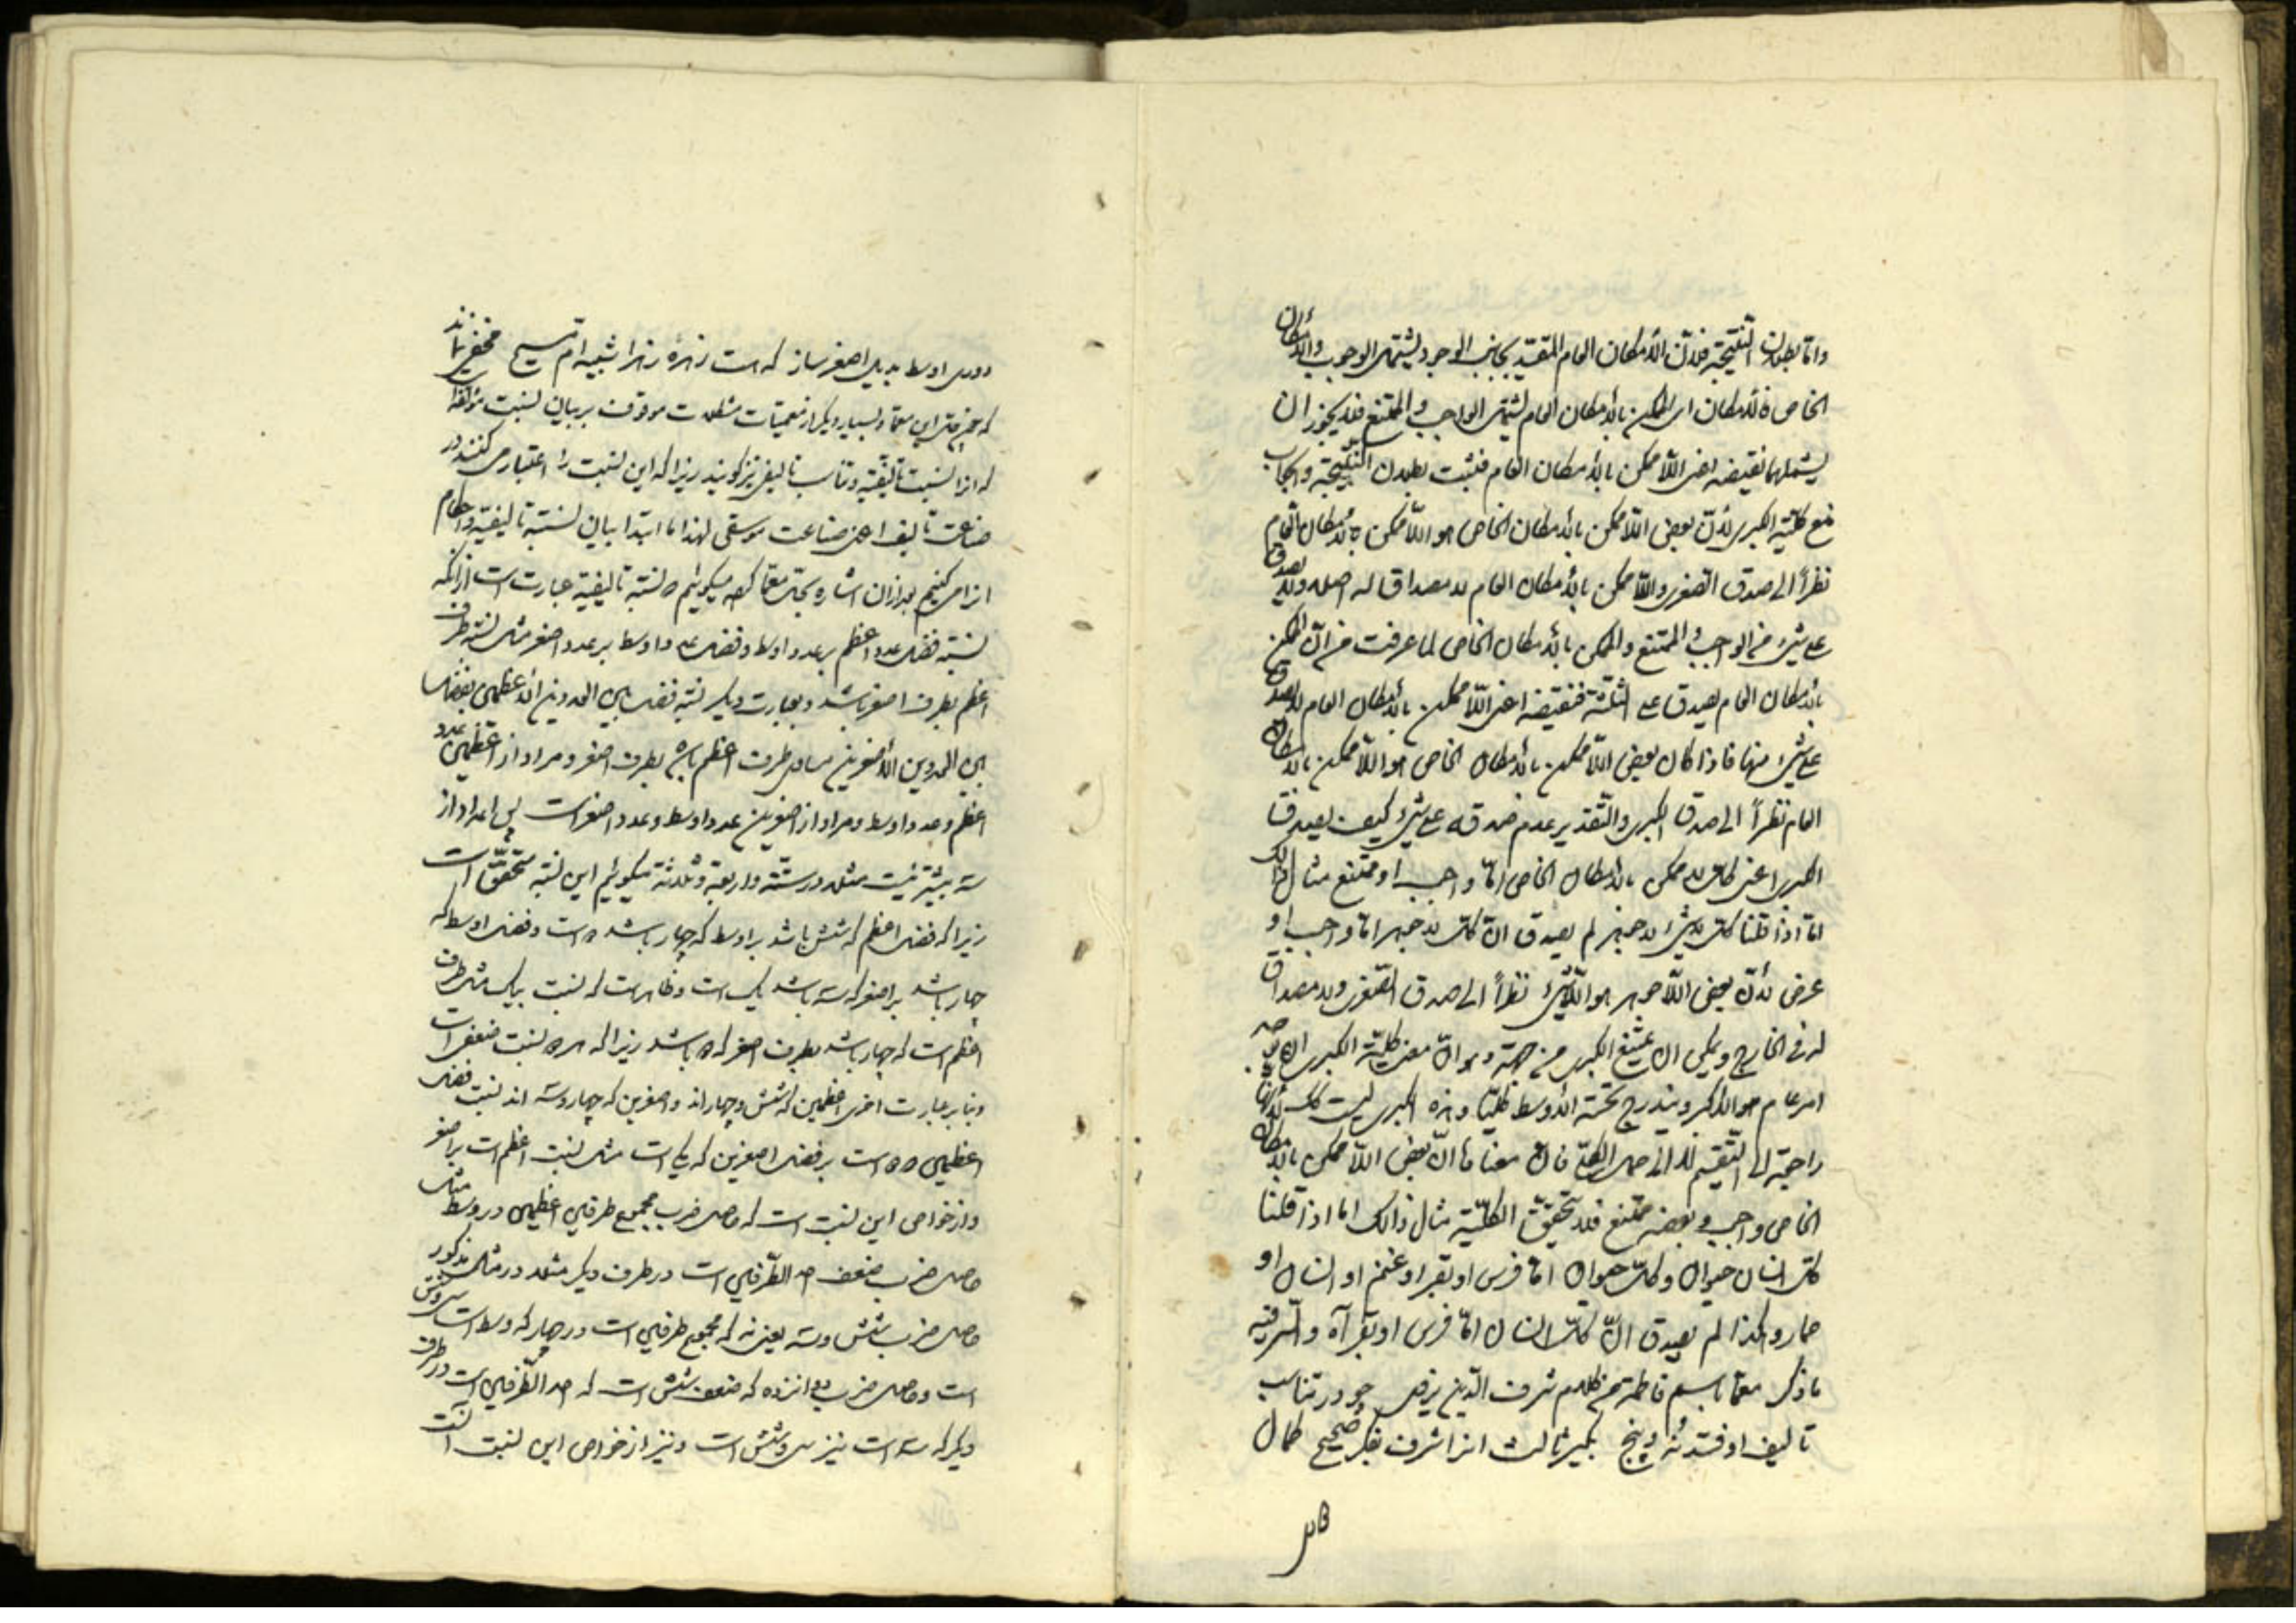 واما بطلان النتيجة فلان الامكان العام المقيد بجانب الوجود يشتمل الوجوب والامكان
الخاص فالامكان اى الممكن بالامكان العام يشتمل الواجب والممتنع فلا يجوز ان
يشملهما نقيضه اعنى اللاممكن بالامكان العام فثبت بطلان النتيجة والجواب
منع كلية الكبرى لان بعض اللاممكن بالامكان الخاص هو اللاممكن بالامكان العام
نظراً الى صدق الصغرى واللاممكن بالامكان العام لا مصداقا له اصلا ولا يصدق
على شىء من الواجب والممتنع والممكن بالامكان الخاص لما عرفت من ان الممكن
بالامكان العام يصدق على الثلثة فنقيضه اعنى اللاممكن بالامكان العام لا يصدق
على شىء منها فاذا كان بعض اللاممكن بالامكان الخاص هو اللاممكن بالامكان
العام نظراً الى صدق الكبرى والتقدير عدم صدقه على شىء كيف يصدق
الكبرى اعنى كل لاممكن بالامكان الخاص اما واجب او ممتنع مثال ذالك
انا اذا قلنا كل لاشىء لاجوهر لم يصدق ان كل لاجوهر اما واجب او
عرض لان بعض اللاجوهر هو اللاشىء نظراً الى صدق الصغرى ولا مصداق
له فى الخارج ويمكن ان يمنع الكبرى من جهة وهو ان معنى كلية الكبرى ان
امر عام هو الاكبر ويندرج تحته الاوسط كليا وهذه الكبرى ليست كك لانها
راجعة الى التقسيم لا الى حمل الكلى فان معناها ان بعض اللاممكن بالامكان
الخاص واجب وبعضه ممتنع فلا تحقق الكلية مثال ذالك اما اذا قلنا
كل انسان حيوان وكل حيوان اما فرس او بقر او غنم او انسان او
حمار وهكذا لم يصدق ان كل انسان اما فرس او بقر آه والسر فيه
ما ذكر معما باسم فاطمة من كلام شرف الدين يزدى چو در تناسب
تاليف اوفتد نه و پنج بگير ثالث انرا شرف بفكر صحيح كمال
دوى اوسط بديل اصغر ساز كه هست زهره زهرا شبيه ام مسيح مخفى نماند
كه حل اين معما و بسيار ديگر از معميات مشكلات موقوف بر بيان نسبت مؤلفه
كه انرا نسبت تاليفيه و تناسب تاليفى نيز گويند زيرا كه اين نسبت را اعتبار مى كنند در
صناعت تاليف اعنى صناعت موسقى لهذا ما ابتدا بيان نسبته تاليفيه و احكام
انرا مى كنيم بعد ازان اشاره بحل معما كرده ميگوئيم كه نسبته تاليفيه عبارت است از انكه
نسبته فضل عدد اعظم بر عدد اوسط و فضل عدد اوسط بر عدد اصغر مثل نسبته طرف
اعظم بطرف اصغر باشد و بعبارت ديگر نسبته فضل بين العددين الاعظمين بفضل
بين العددين الاصغرين مساوى طرف اعظم باشد بطرف اصغر و مراد از اعظمين عدد
اعظم و عدد اوسط و مراد از اصغرين عدد اوسط و عدد اصغر است پس اعداد از
سه بيشتر نيست مثلا در ستة و اربعة و ثلاثة ميگوئيم اين نسبته متحقق است
زيرا كه فضل اعظم كه شش باشد بر اوسط كه چهار باشد ۲ است و فضل اوسط كه
چهار باشد بر اصغر كه سه باشد يك است و ظاهر است كه نسبت بيك مثل طرف
اعظم است
و بنا بر عبارت اخرى اعظمين كه شش و چهار اند و اصغرين كه چهار و سه اند نسبت فضل
اعظمين ۲ است بر فضل اصغرين كه يك است مثل نسبت اعظم است بر اصغر
و از خواص اين نسبت است كه حاصل ضرب مجموع طرفين اعظمين در وسط مثل
حاصل ضرب ضعف احد الطرفين است در طرف ديگر مثلا در مثال مذكور
حاصل ضرب شش و سه يعنى نه كه مجموع طرفين است در چهار كه وسط است سى و شش
است و حاصل ضرب دوانزده كه ضعف شش است كه احد الطرفين است در طرف
ديگر كه سه است نيز سى و شش است و نيز از خواص اين نسبت آنست